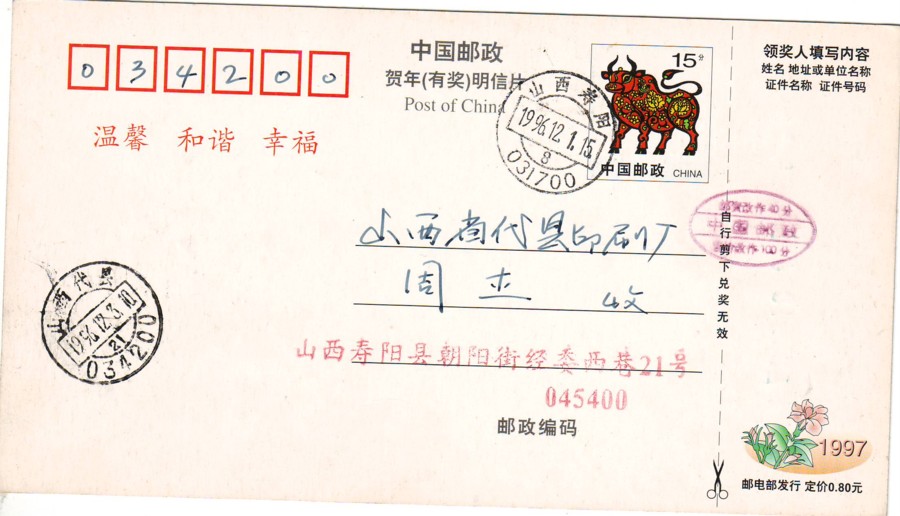 034200
中国邮政
贺年(有奖)明信片
Post of China
温馨 和谐 幸福
15分
中国邮政 CHINA
山西寿阳
1996.12.1.15
8
031700
领奖人填写内容
姓名 地址或单位名称
证件名称 证件号码
邮资改作40分
中国邮政
100分
自行剪下兑奖无效
山西省代县印刷厂
周杰 收
山西代县
1996.12.3.10
21
034200
山西寿阳县朝阳街经委西巷21号
045400
邮政编码
1997
邮电部发行 定价0.80元